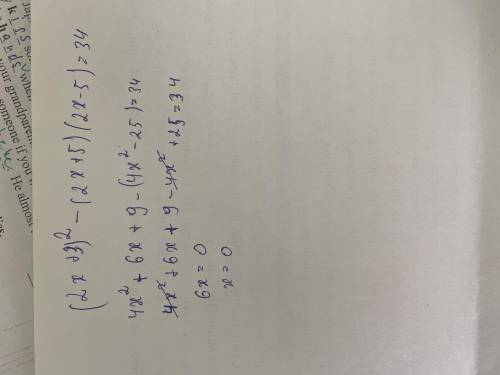 (2x+3)² - (2x+5)(2x-5) = 34
4x² + 6x + 9 - (4x² - 25) = 34
4x² + 6x + 9 - 4x² + 25 = 34
6x = 0
x = 0
your grandparen
someone if you
He almost
when